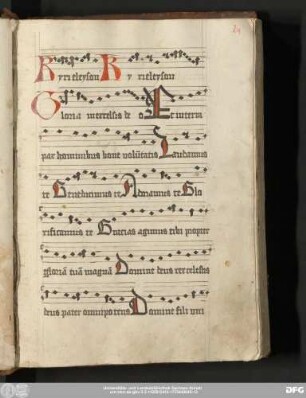 Kyrieleyson Kyrieleyson
Gloria in excelsis deo Et in terra
pax hominibus bone volũtatis Laudamus
te Benedicimus te Adoramus te Glo
rificamus te Gracias agimus tibi propter
gloriã tuã magnã Domine deus rex celestis
deus pater omnipotens Domine fili uni